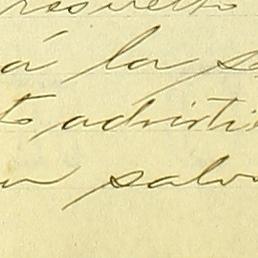 resuelto
á la s
to advirtié
n salv